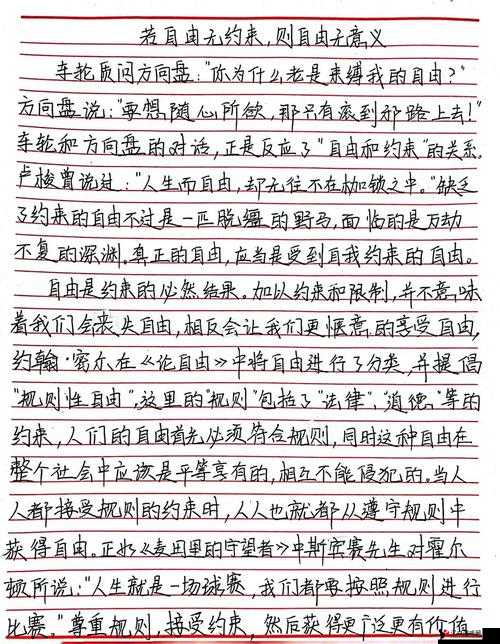 若自由无约束,则自由无意义
车轮质问方向盘:"你为什么老是束缚我的自由?"
方向盘说:"要想随心所欲,那只有滚到邪路上去!"
车轮和方向盘的对话,正是反应了"自由和约束"的关系.
卢梭曾说过:"人生而自由,却无往不在枷锁之中."缺乏
了约束的自由不过是一匹脱缰的野马,面临的是万劫
不复的深渊.真正的自由,应当是受到自我约束的自由。
自由是约束的必然结果。加以约束和限制,并不意味
着我们会丧失自由,相反会让我们更惬意的享受自由,
约翰·密尔在《论自由》中将自由进行了分类,并提倡
"规则性自由",这里的"规则"包括了"法律"、"道德"等的
约束,人们的自由首先必须符合规则,同时这种自由在
整个社会中应该是平等享有的,相互不能侵犯的.当人
人都接受规则的约束时,人人也就都从遵守规则中
获得自由.正如《麦田里的守望者》中斯宾赛先生对霍尔
顿所说:"人生就是一场球赛,我们都要按照规则进行
比赛."尊重规则,接受约束,然后获得更广泛更有价值